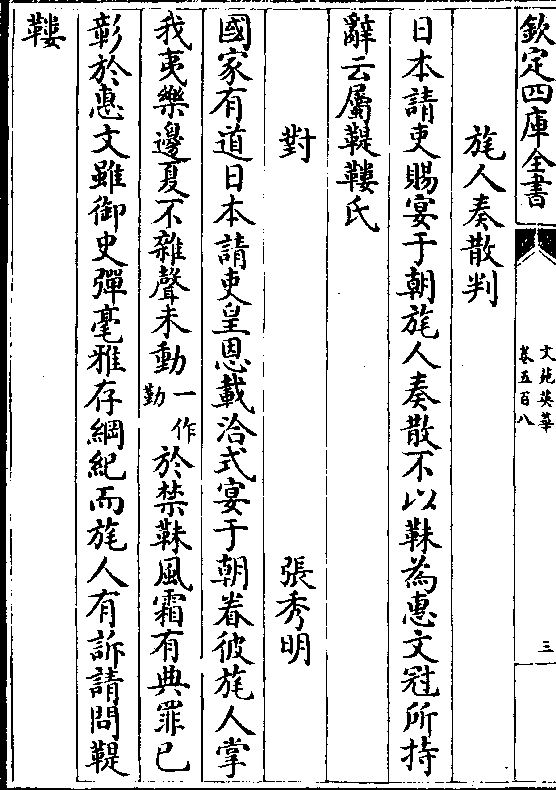 欽定四庫全書
文苑英華
卷五百八
三
旄人奏散判
日本請吏賜宴于朝旄人奏散不以靺為惠文冠所持
辭云屬鞮鞻氏
對
張秀明
國家有道日本請吏皇恩載洽式宴于朝眷彼旄人掌
我夷樂邊夏不雜聲未動一作勤於禁靺風霜有典罪已
彰於惠文雖御史彈毫雅存綱紀而旄人有訴請問鞮
鞻